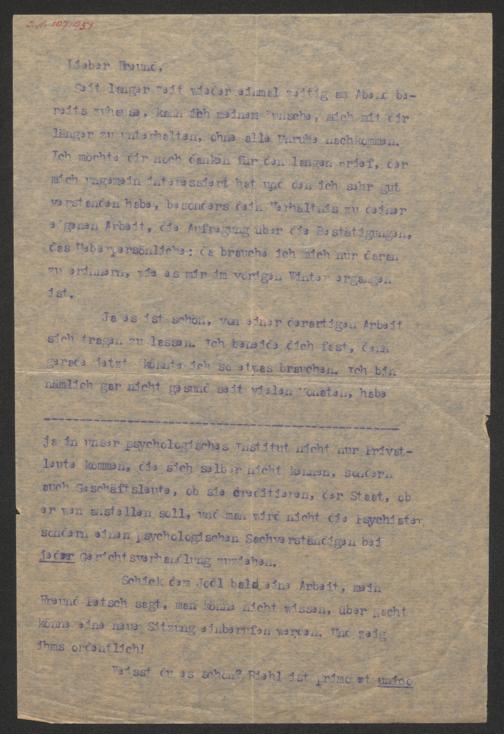 Lieber Freund,
Seit langer Zeit wieder einmal zeitig am Abend be-
reits zuhause, kann ich meinem Wunsche, mich mit dir
länger zu unterhalten, ohne alle Unruhe nachkommen.
Ich möchte dir noch danken für den langen Brief, der
mich ungemein interessiert hat und den ich sehr gut
verstanden habe, besonders dein Verhältnis zu deiner
eigenen Arbeit, die Aufregung über die Bestätigungen,
das Ueberpersönliche: da brauche ich mich nur daran
zu erinnern, wie es mir im vorigen Winter ergangen
ist.
Ja es ist schön, von einer derartigen Arbeit
sich tragen zu lassen. Ich beneide dich fast, denn
gerade jetzt könnte ich so etwas brauchen. Ich bin
nämlich gar nicht gesund seit vielen Monaten, habe
ja in unser psychologisches Institut nicht nur Privat-
leute kommen, die sich selber nicht kennen, sondern
auch Geschäftsleute, ob sie creditieren, der Staat, ob
er wen anstellen soll, und man wird nicht die Psychiater
sondern einen psychologischen Sachverständigen bei
jeder Gerichtsverhandlung zuziehen.
Schick dem Jodl bald eine Arbeit, mein
Freund sagt, man könne nicht wissen, über Nacht
könne eine neue Sitzung einberufen werden. Und zeig
ihms ordentlich!
Weisst du es schon? Riehl ist primo et unico